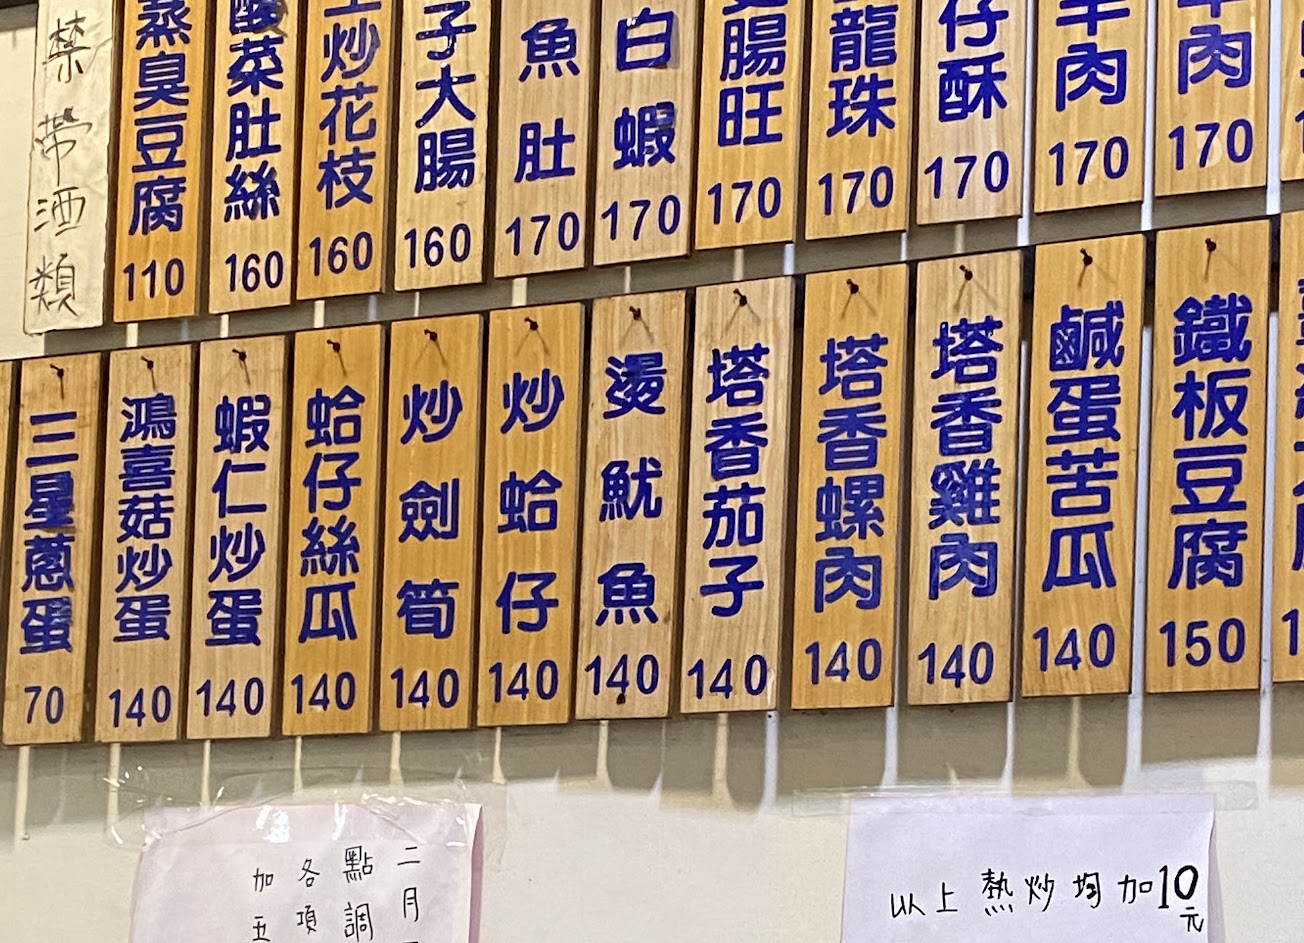 禁帶酒類
蒸臭豆腐
110
酸菜肚絲
160
炒花枝
160
子大腸
160
魚肚
170
白蝦
170
腸旺
170
龍珠
170
仔酥
170
羊肉
170
肉
170
三星蔥蛋
70
鴻喜菇炒蛋
140
蝦仁炒蛋
140
蛤仔絲瓜
140
炒劍筍
140
炒蛤仔
140
燙魷魚
140
塔香茄子
140
塔香螺肉
140
塔香雞肉
140
鹹蛋苦瓜
140
鐵板豆腐
150
二月
點調
各項
加五
以上熱炒均加10元